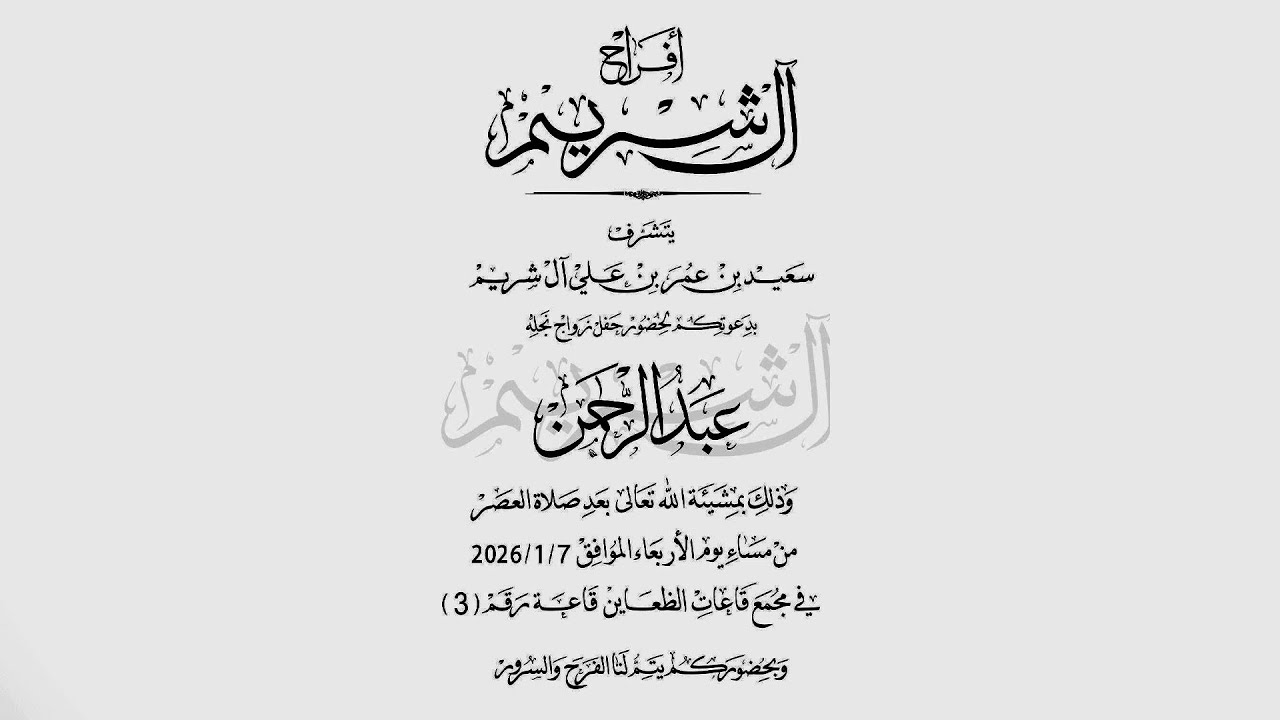 أفراح
آل شريم
يتشرف
سعيد بن عمر بن علي آل شريم
بدعوتكم لحضور حفل زواج نجله
آل شريم
عبدالرحمن
وذلك بمشيئة الله تعالى بعد صلاة العصر
من مساء يوم الأربعاء الموافق 2026/1/7
في مجمع قاعات الظعاين قاعة رقم (3)
وبحضوركم يتم لنا الفرح والسرور